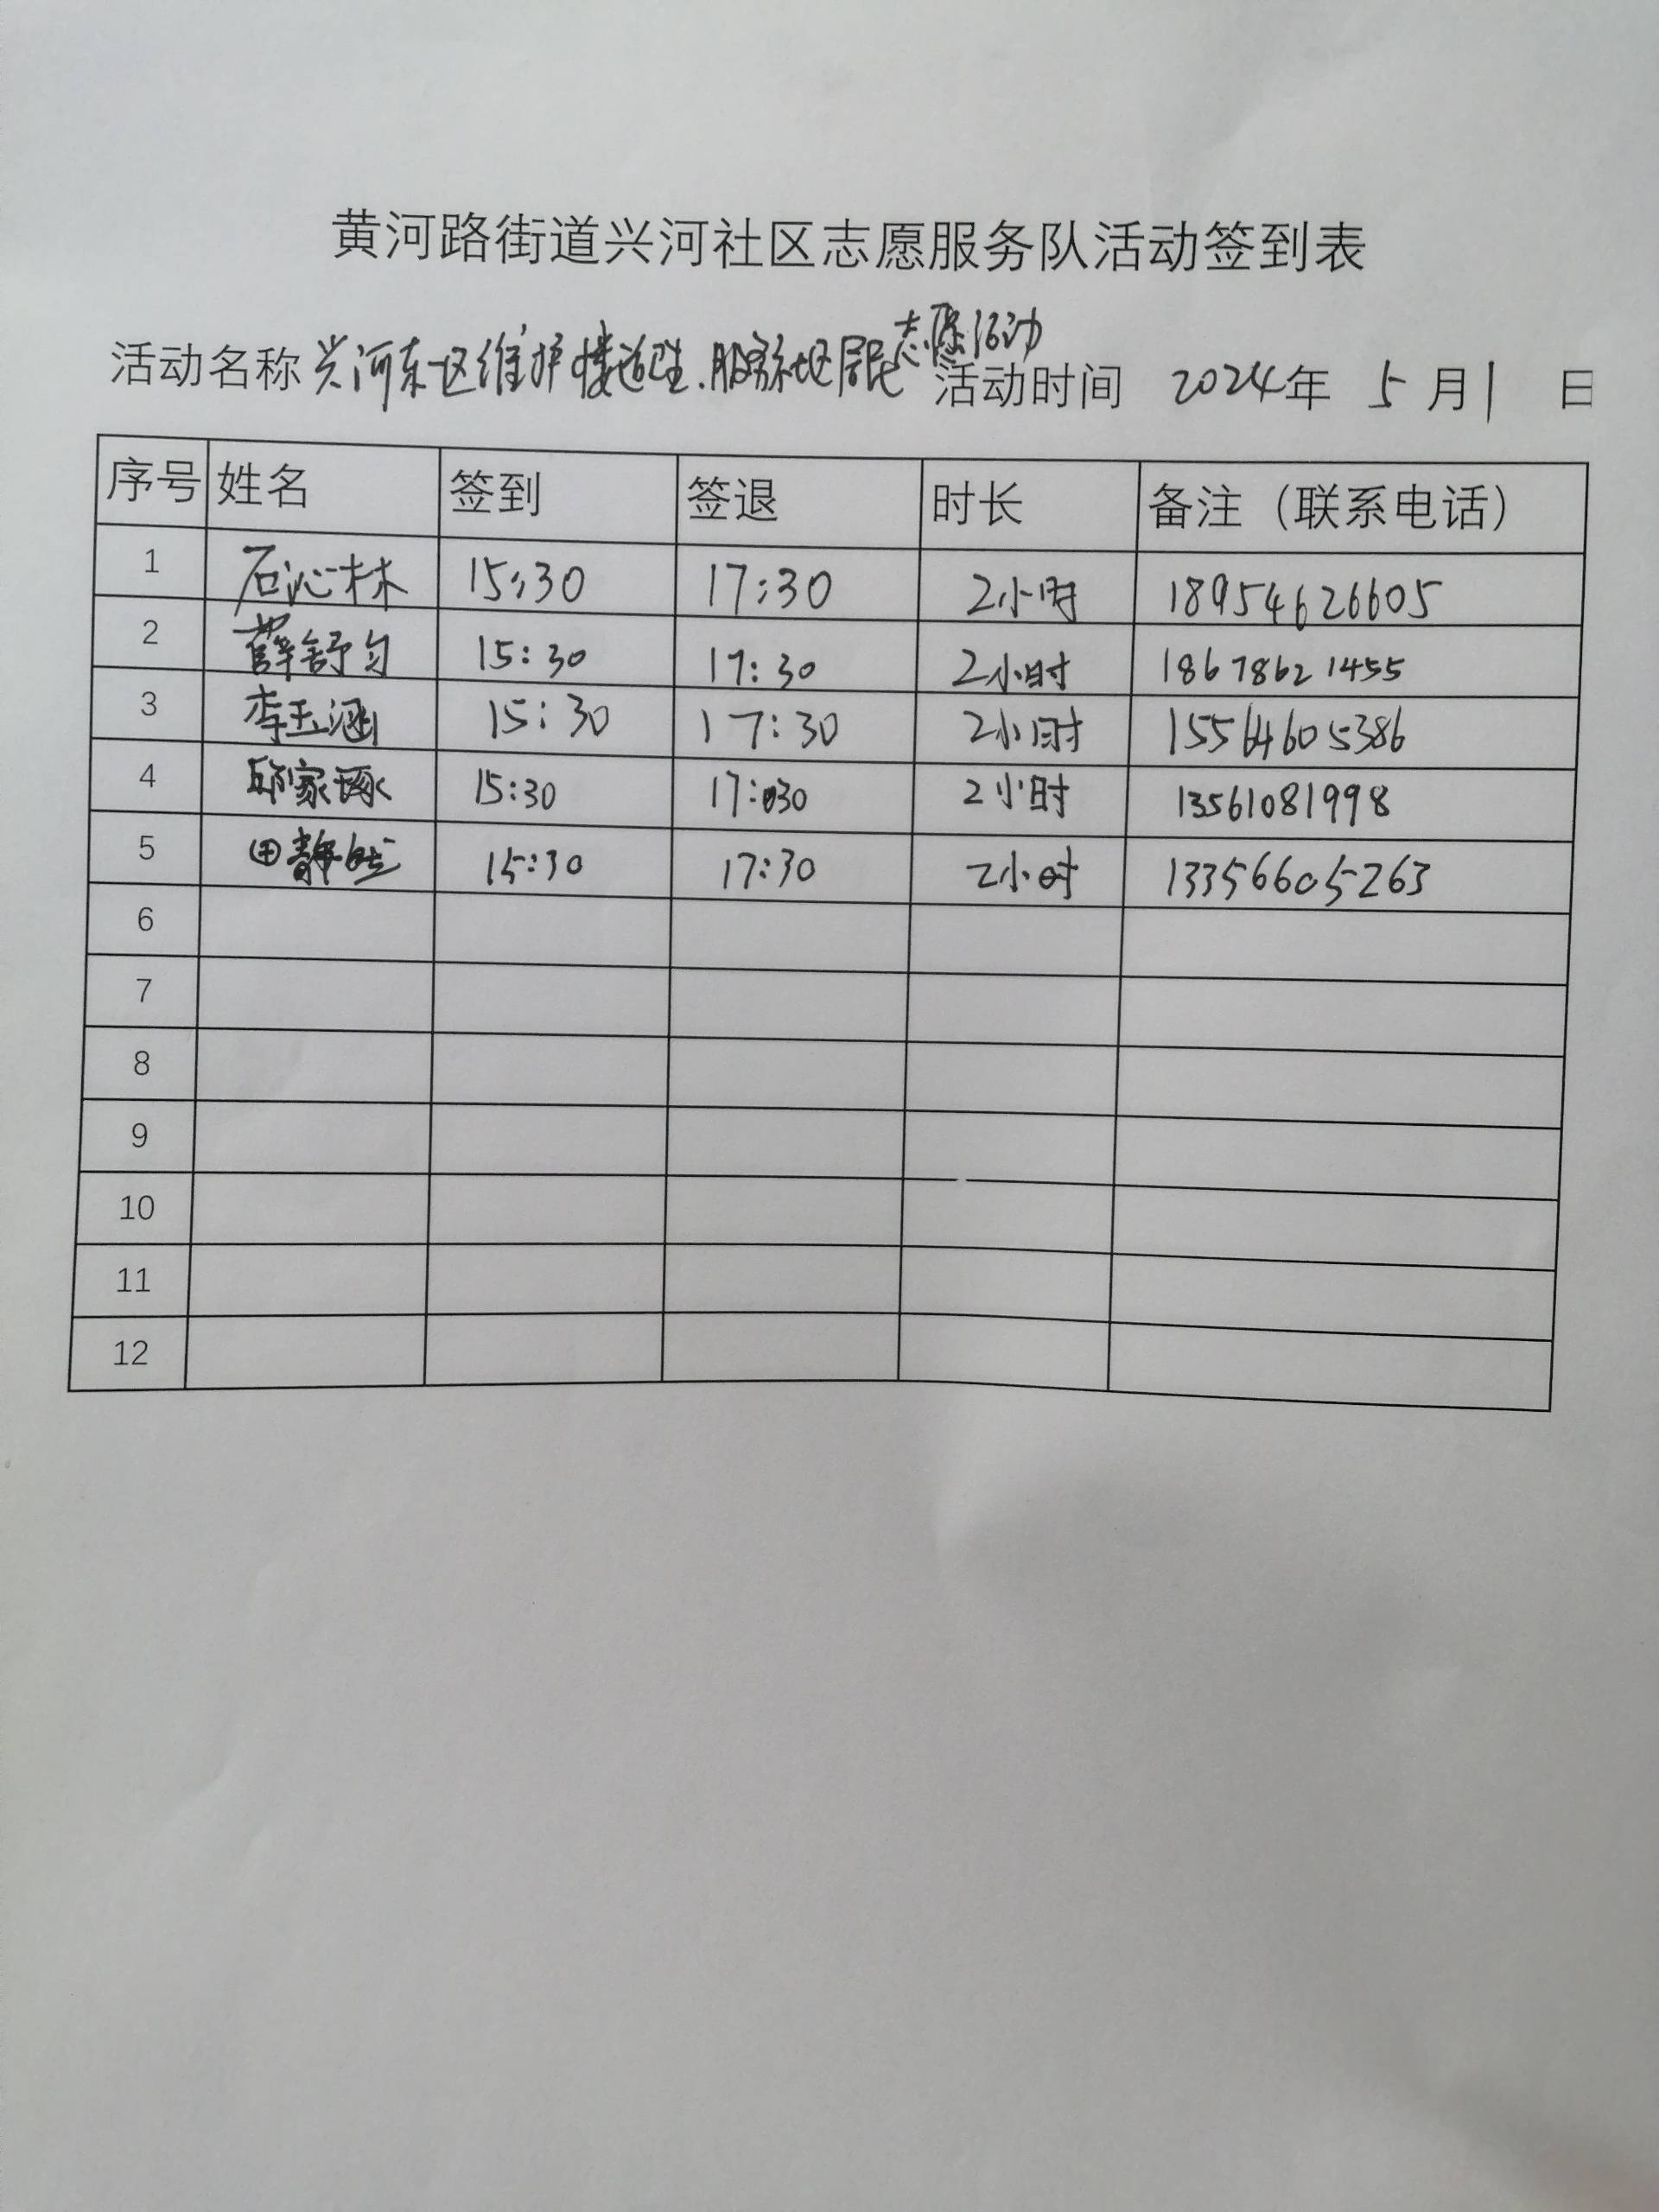 黄河路街道兴河社区志愿服务队活动签到表
活动名称 兴河东区维护楼道卫生.服务社区居民志愿活动 活动时间 2024年 5月1 日
序号 姓名 签到 签退 时长 备注（联系电话）
1 石沁林 15:30 17:30 2小时 18954626605
2 薛舒匀 15:30 17:30 2小时 18678621455
3 李玉涵 15:30 17:30 2小时 15564605386
4 邱家琢 15:30 17:30 2小时 13561081998
5 田静 15:30 17:30 2小时 13356605263
6
7
8
9
10
11
12